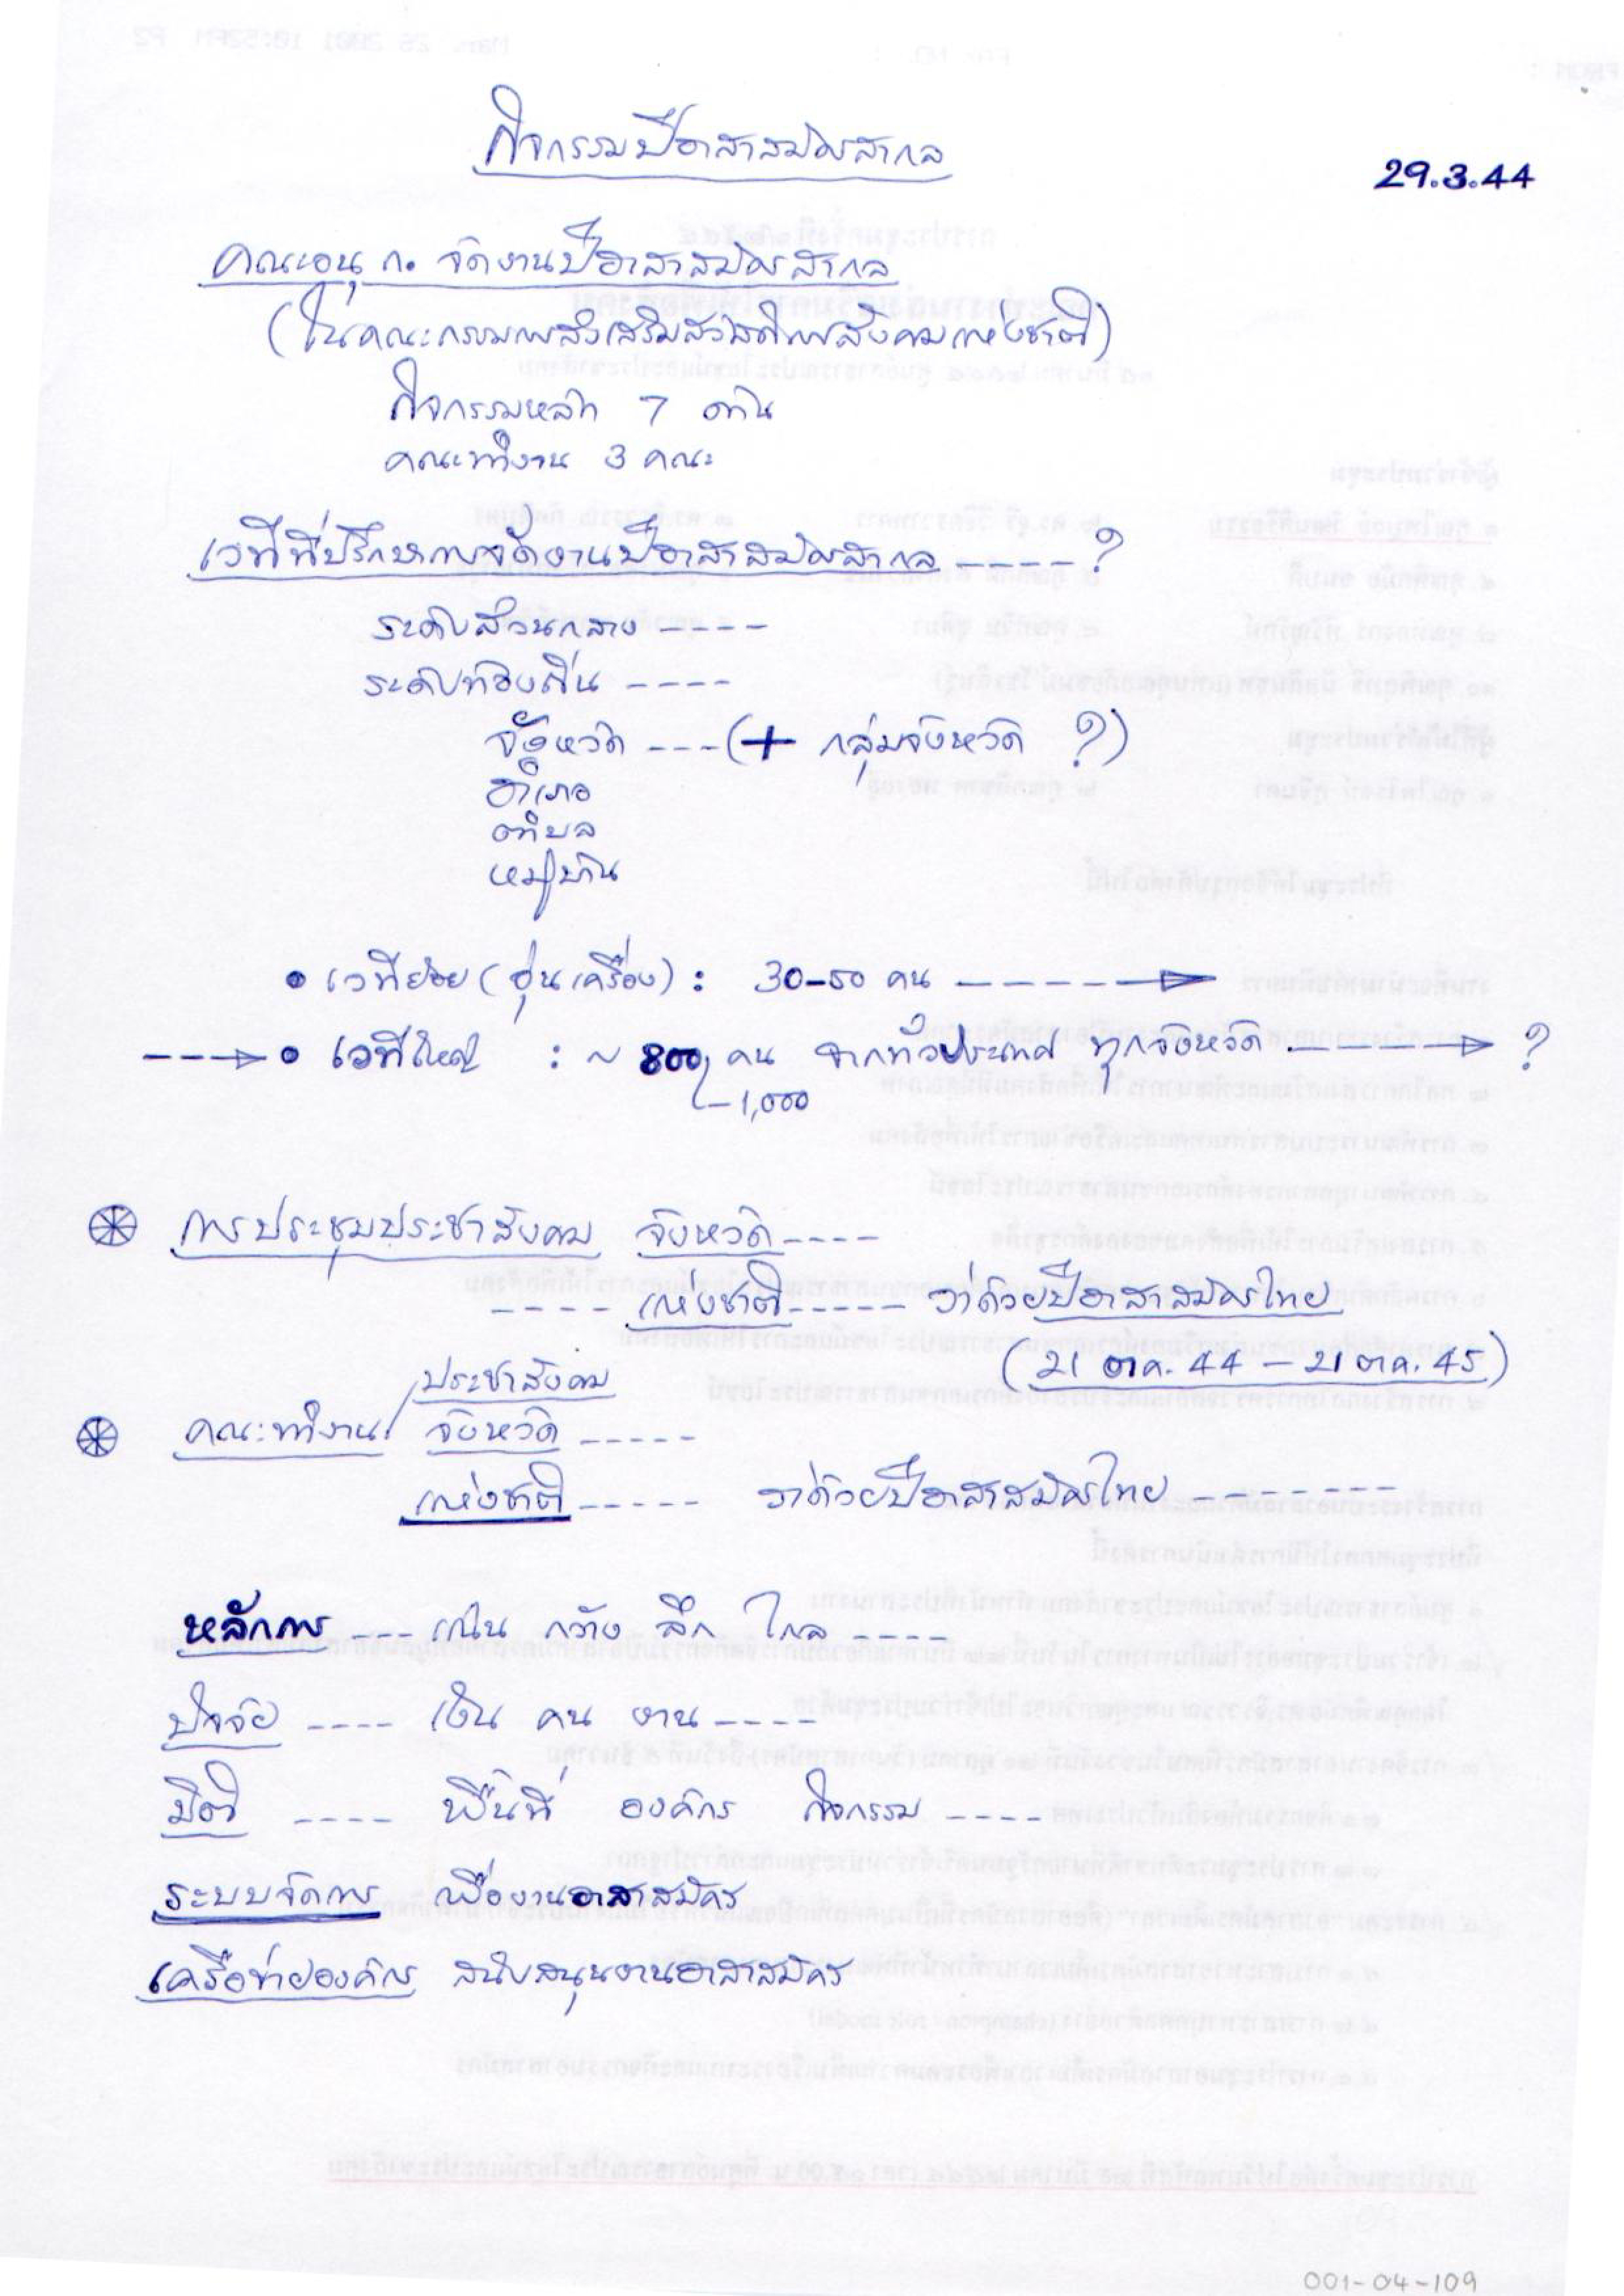 กิจกรรมปีอาสาสมัครสากล
29.3.44
คณะอนุ ก. จัดงานปีอาสาสมัครสากล
(ในคณะกรรมการส่งเสริมสวัสดิการสังคมแห่งชาติ)
กิจกรรมหลัก 7 ด้าน
คณะทำงาน 3 คณะ
เวทีที่ปรึกษาการจัดงานปีอาสาสมัครสากล -----?
ระดับส่วนกลาง ----
ระดับท้องถิ่น ----
จังหวัด ---(+ กลุ่มจังหวัด ?)
อำเภอ
ตำบล
หมู่บ้าน
• เวทีย่อย (อุ่นเครื่อง) : 30-50 คน ------→
---→ • เวทีใหญ่ : ~ 800 คน จากทั่วประเทศ ทุกจังหวัด -----→ ?
- 1,000
การประชุมประชาสังคม จังหวัด----
---- แห่งชาติ----- ว่าด้วยปีอาสาสมัครไทย
(21 ตค. 44 - 21 ตค. 45)
ประชาสังคม
คณะทำงาน/ จังหวัด -----
แห่งชาติ ----- ว่าด้วยปีอาสาสมัครไทย --------
หลักการ --- แน่น กว้าง ลึก ไกล ----
ปัจจัย ---- เงิน คน งาน ----
มิติ ---- พื้นที่ องค์กร กิจกรรม ----
ระบบจัดการ เพื่องานอาสาสมัคร
เครือข่ายองค์กร สนับสนุนงานอาสาสมัคร
001-04-109